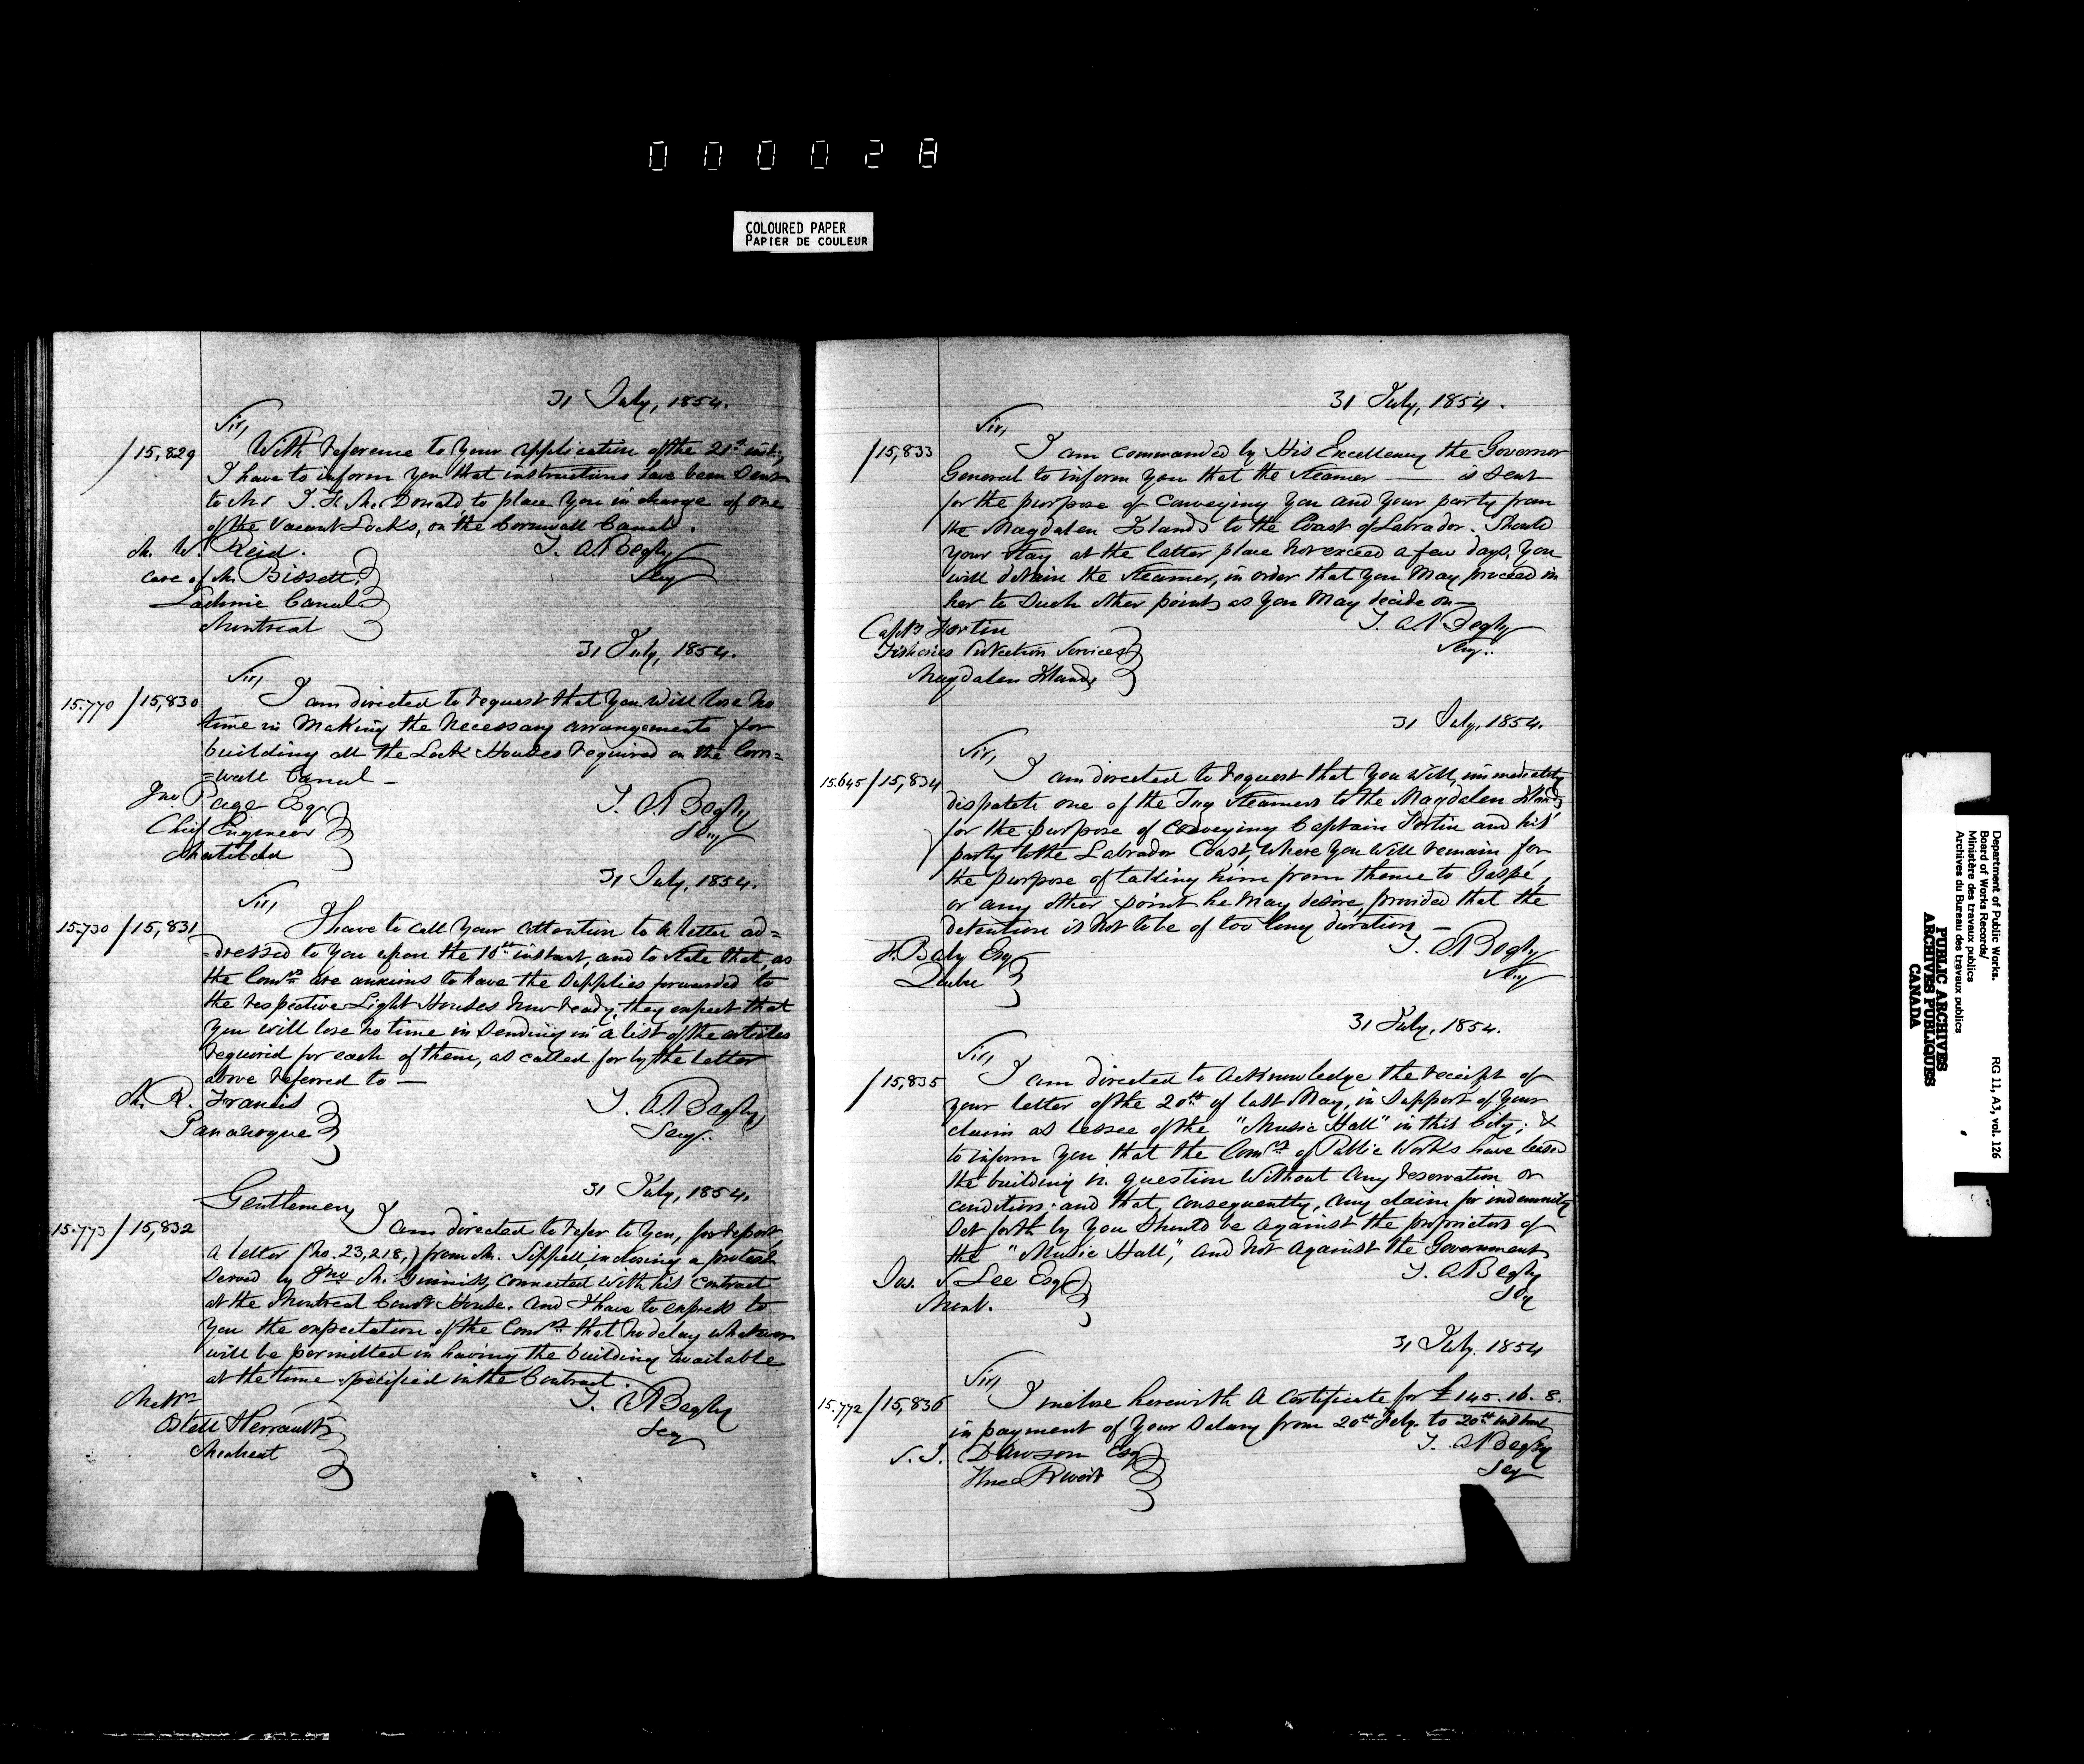 000028
COLOURED PAPER
PAPIER DE COULEUR
31 July, 1854.
Sir,
/15,829 With reference to your application of the 21st inst.,
I have to inform you that instructions have been sent
to Mr J. H. McDonald, to place you in charge of one
of the Vacant Locks, on the Cornwall Canal.
Mr. W. Reid.
T. A. Begly
Secy
care of Mr. Bissett,
Lachine Canal
Montreal
31 July, 1854.
Sir,
15.770 /15,830 I am directed to request that you will lose no
time in making the necessary arrangements for
building all the Lock Houses required on the Corn=
=wall Canal –
Jno. Page Esq.
T. A. Begly
Secy
Chief Engineer
Matilda
31 July, 1854.
Sir,
15.730 /15,831 I have to call your attention to a letter ad=
=dressed to you upon the 10th instant, and to state that, as
the Comrs. are anxious to have the supplies forwarded to
the respective Light Houses now ready, they expect that
you will lose no time in sending in a list of the articles
required for each of them, as called for by the letter
above referred to —
Mr. R. Francis
T. A. Begly,
Secy.
Gananoque
31 July, 1854.
Gentlemen,
15.773 /15,832 I am directed to refer to you, for report,
a letter (No. 23,218,) from Mr. Sippell, inclosing a protest
served by Jno McGinniss, connected with his contract
at the Montreal Court House. and I have to express to
you the expectation of the Comrs. that no delay whatever
will be permitted in having the building available
at the time specified in the Contract.
Messrs
T. A. Begly
Secy
Ostell & Perrault
Montreal
31 July, 1854.
Sir,
/15,833 I am commanded by His Excellency the Governor
General to inform you that the steamer — is sent
for the purpose of conveying you and your party from
the Magdalen Islands to the Coast of Labrador. Should
your stay at the latter place not exceed a few days, you
will detain the steamer, in order that you may proceed in
her to such other points as you may decide on —
T. A. Begly
Secy.
Captn Fortin
Fisheries Protection Services
Magdalen Islands
31 July, 1854.
Sir,
15.645 /15,834 I am directed to request that you will, immediately
dispatch one of the Tug Steamers to the Magdalen Islands
for the purpose of conveying Captain Fortin and his
party to the Labrador Coast, where you will remain for
the purpose of taking him from thence to Gaspé,
or any other point he may desire, provided that the
detention is not to be of too long duration, —
F. Baby Esq
T. A. Begly
Secy
Quebec
31 July, 1854.
Sir,
/15,835 I am directed to acknowledge the receipt of
your letter of the 20th of last May, in support of your
claim as lessee of the "Music Hall" in this city; &
to inform you that the Comrs. of Public Works have leased
the building in question without any reservation or
condition: and that, consequently, any claim for indemnity
set forth by you should be against the proprietors of
the "Music Hall," and not against the Government
T. A. Begly
Secy
Jas. S. Lee Esq
Mont.
31 July. 1854
Sir,
15.772 /15,836 I inclose herewith a Certificate for £145. 16. 8.
in payment of your salary from 20th Feby. to 20th instant
T. A. Begly
Secy
S. J. Dawson Esq
Three Rivers
Department of Public Works. RG 11, A3, vol. 126
Board of Works Records/
Ministère des travaux publics
Archives du Bureau des travaux publics
PUBLIC ARCHIVES
ARCHIVES PUBLIQUES
CANADA